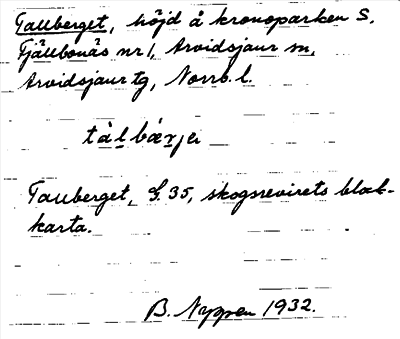 Tallberget, höjd å kronoparken S.
Fjällbonäs nr 1, Arvidsjaur sn,
Arvidsjaur tg, Norrb. l.
tàlbærjet
Tallberget, G. 35, skogsrevirets blad-
karta.
B. Nyppen 1932.